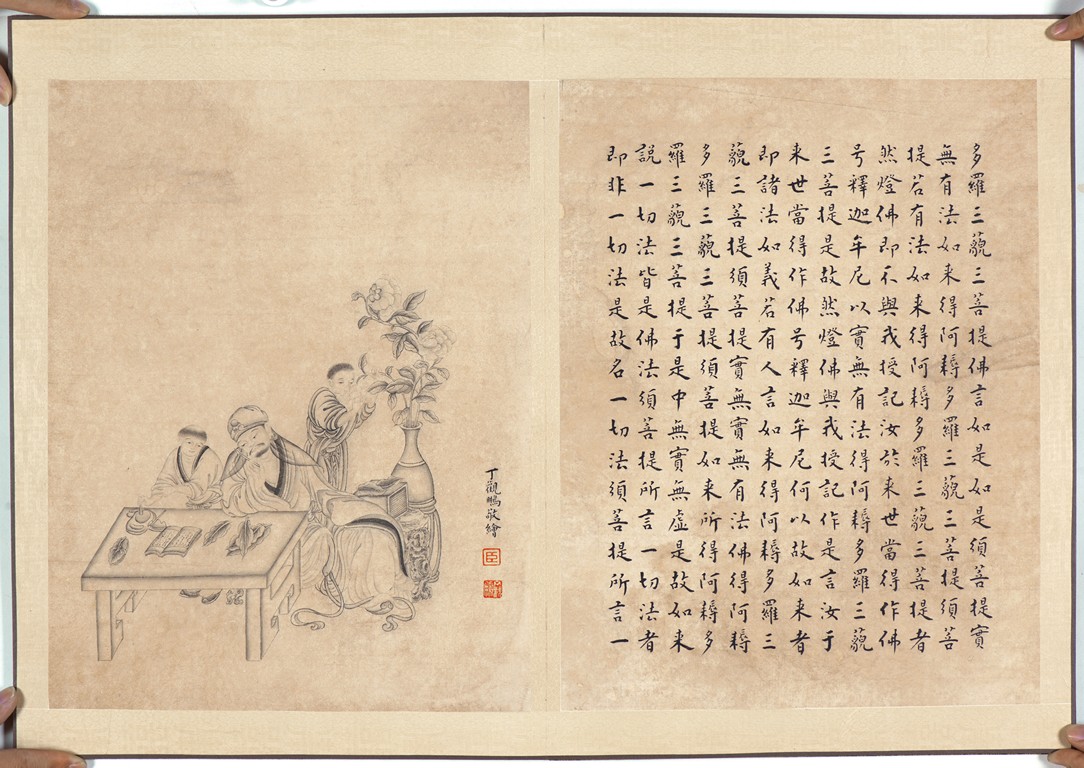 多羅三藐三菩提佛言如是如是須菩提實
無有法如来得阿耨多羅三藐三菩提須菩
提若有法如来得阿耨多羅三藐三菩提者
然燈佛即不與我授記汝於来世當得作佛
号釋迦牟尼以實無有法得阿耨多羅三藐
三菩提是故然燈佛與我授記作是言汝于
来世當得作佛号釋迦牟尼何以故如来者
即諸法如義若有人言如来得阿耨多羅三
藐三菩提須菩提實無實無有法佛得阿耨
多羅三藐三菩提須菩提如来所得阿耨多
羅三藐三菩提于是中無實無虛是故如来
說一切法皆是佛法須菩提所言一切法者
即非一切法是故名一切法須菩提所言一
丁觀鵬敬繪
臣